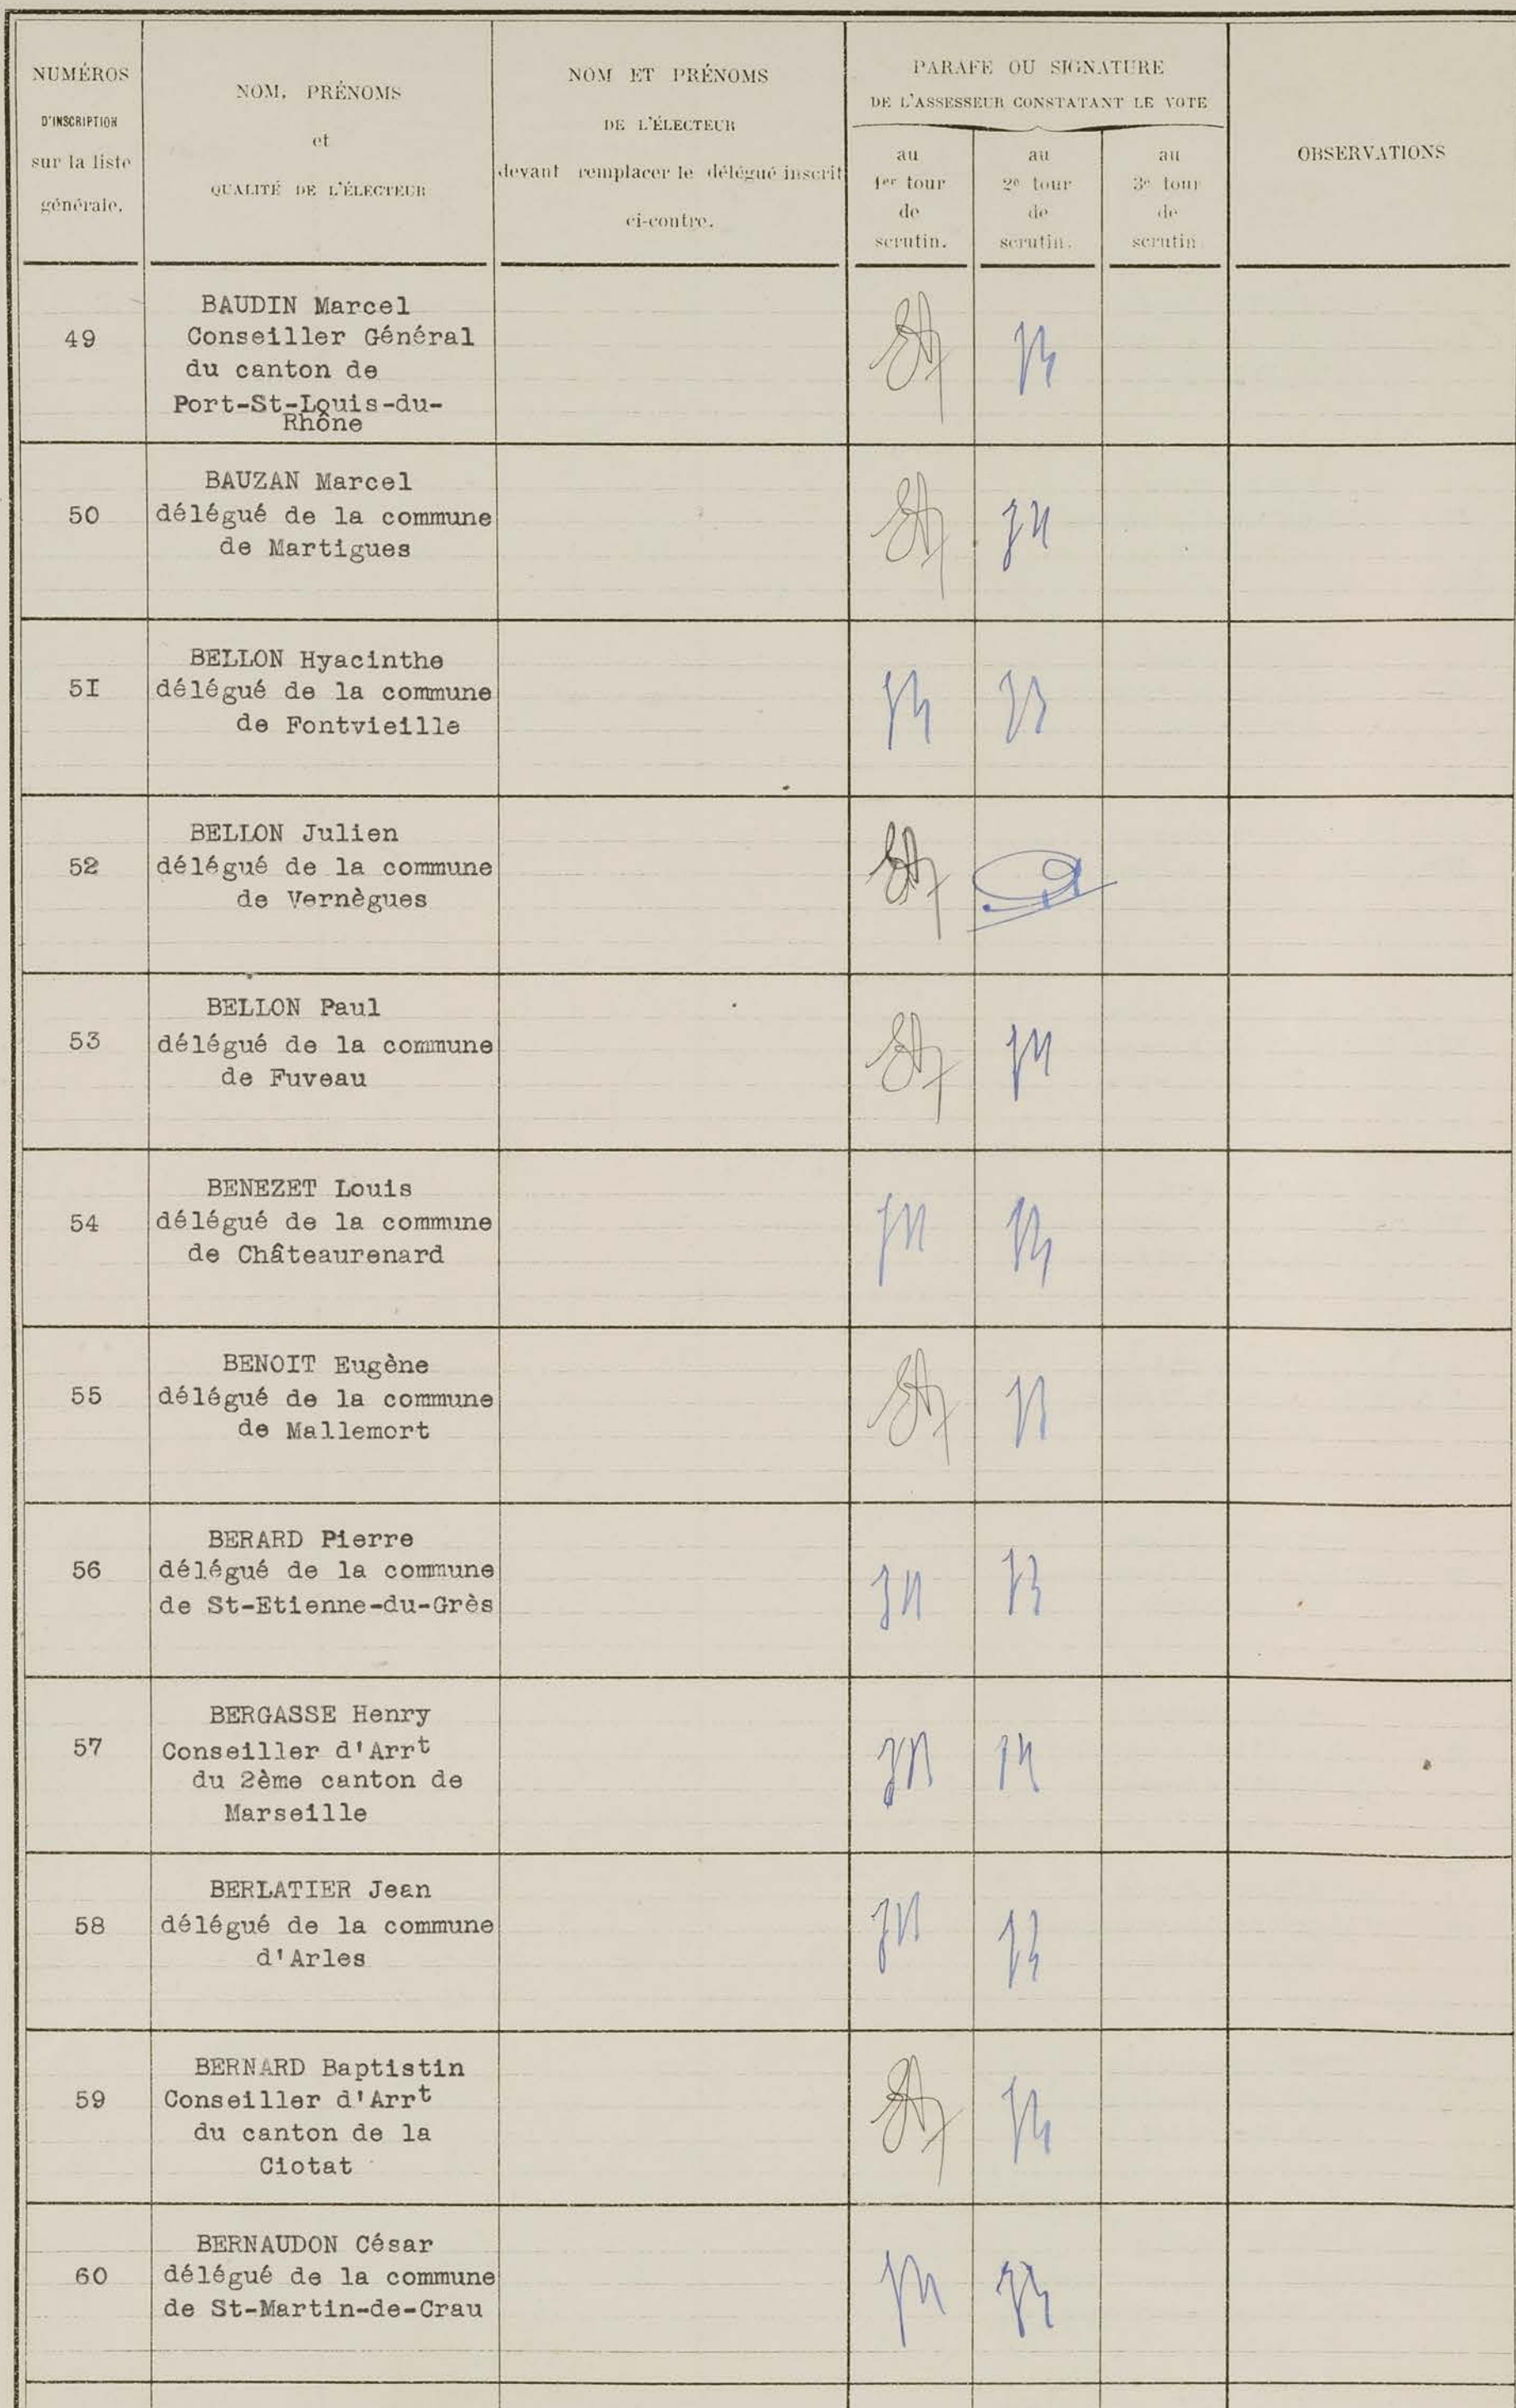 NUMÉROS
D'INSCRIPTION
sur la liste
générale.
NOM, PRÉNOMS
et
QUALITÉ DE L'ÉLECTEUR
NOM ET PRÉNOMS
DE L'ÉLECTEUR
devant remplacer le délégué inscrit
ci-contre.
PARAFE OU SIGNATURE
DE L'ASSESSEUR CONSTATANT LE VOTE
au
1er tour
de
scrutin.
au
2e tour
de
scrutin.
au
3e tour
de
scrutin
OBSERVATIONS
49
BAUDIN Marcel
Conseiller Général
du canton de
Port-St-Louis-du-
Rhône
50
BAUZAN Marcel
délégué de la commune
de Martigues
5I
BELLON Hyacinthe
délégué de la commune
de Fontvieille
52
BELLON Julien
délégué de la commune
de Vernègues
53
BELLON Paul
délégué de la commune
de Fuveau
54
BENEZET Louis
délégué de la commune
de Châteaurenard
55
BENOIT Eugène
délégué de la commune
de Mallemort
56
BERARD Pierre
délégué de la commune
de St-Etienne-du-Grès
57
BERGASSE Henry
Conseiller d'Arrt
du 2ème canton de
Marseille
58
BERLATIER Jean
délégué de la commune
d'Arles
59
BERNARD Baptistin
Conseiller d'Arrt
du canton de la
Ciotat
60
BERNAUDON César
délégué de la commune
de St-Martin-de-Crau